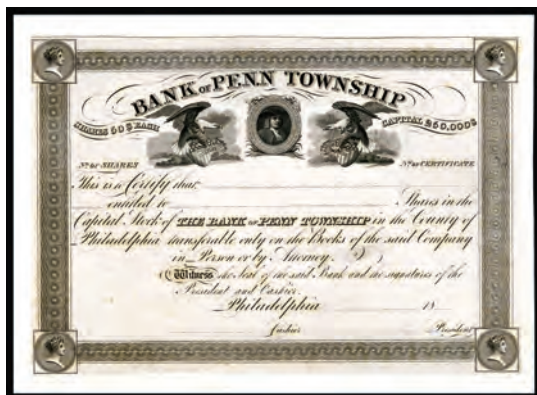 BANK OF PENN TOWNSHIP
SHARES 50$ EACH
CAPITAL 250,000$
No. of SHARES
No. of CERTIFICATE
This is to Certify that
entitled to Shares in the
Capital Stock of THE BANK OF PENN TOWNSHIP in the County of
Philadelphia transferable only on the Books of the said Company
in Person or by Attorney.
Witness the Seal of the said Bank and the signatures of the
President and Cashier.
Philadelphia 18
Cashier President